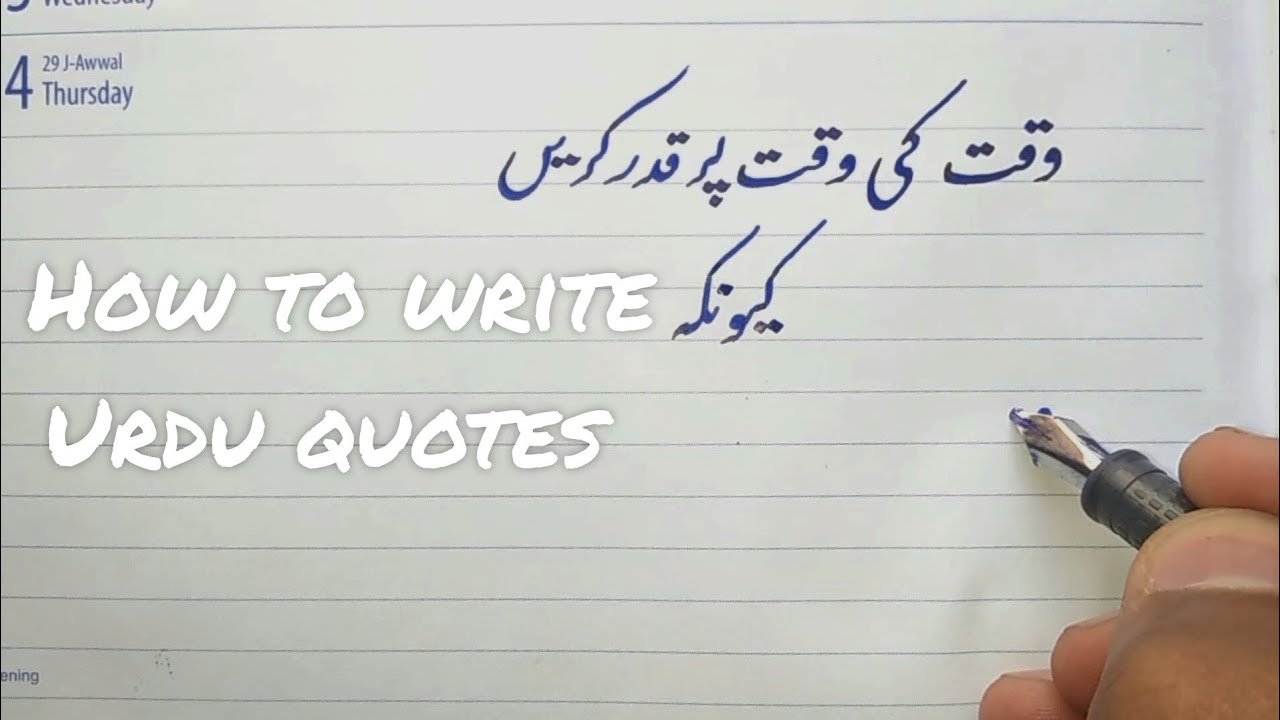 Wednesday
4 29 J-Awwal
Thursday
وقت کی وقت پر قدر کریں
کیونکہ
HOW TO WRITE
URDU QUOTES
ening